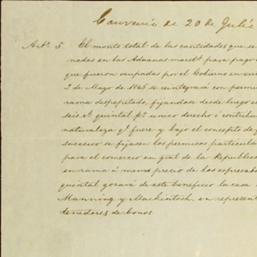 Convenio de 20 de Julio
Artº 5. El monto total de las cantidades que se
nadas en las Aduanas maritª para pago
que fueron ocupadas por el Gobierno en
2 de Mayo de 1845 se reintegrará con permi
rama despepitado, fijandose desde luego
seis rª quintal pª unico derecho
naturaleza qº fuere y bajo el concepto de
sucesivo se fijasen los permisos particula
para el comercio en gral de la Republica
en rama á menos precio de los espresados
quintal gozará de este beneficio la casa
Manning y Mackintosh, en represent
tenedores de bonos.